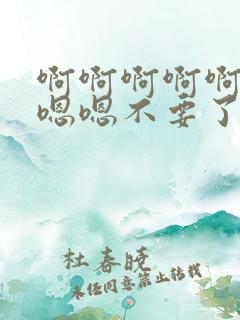 啊啊啊啊啊
嗯嗯不要了
杜春晓
未经同意禁止转载